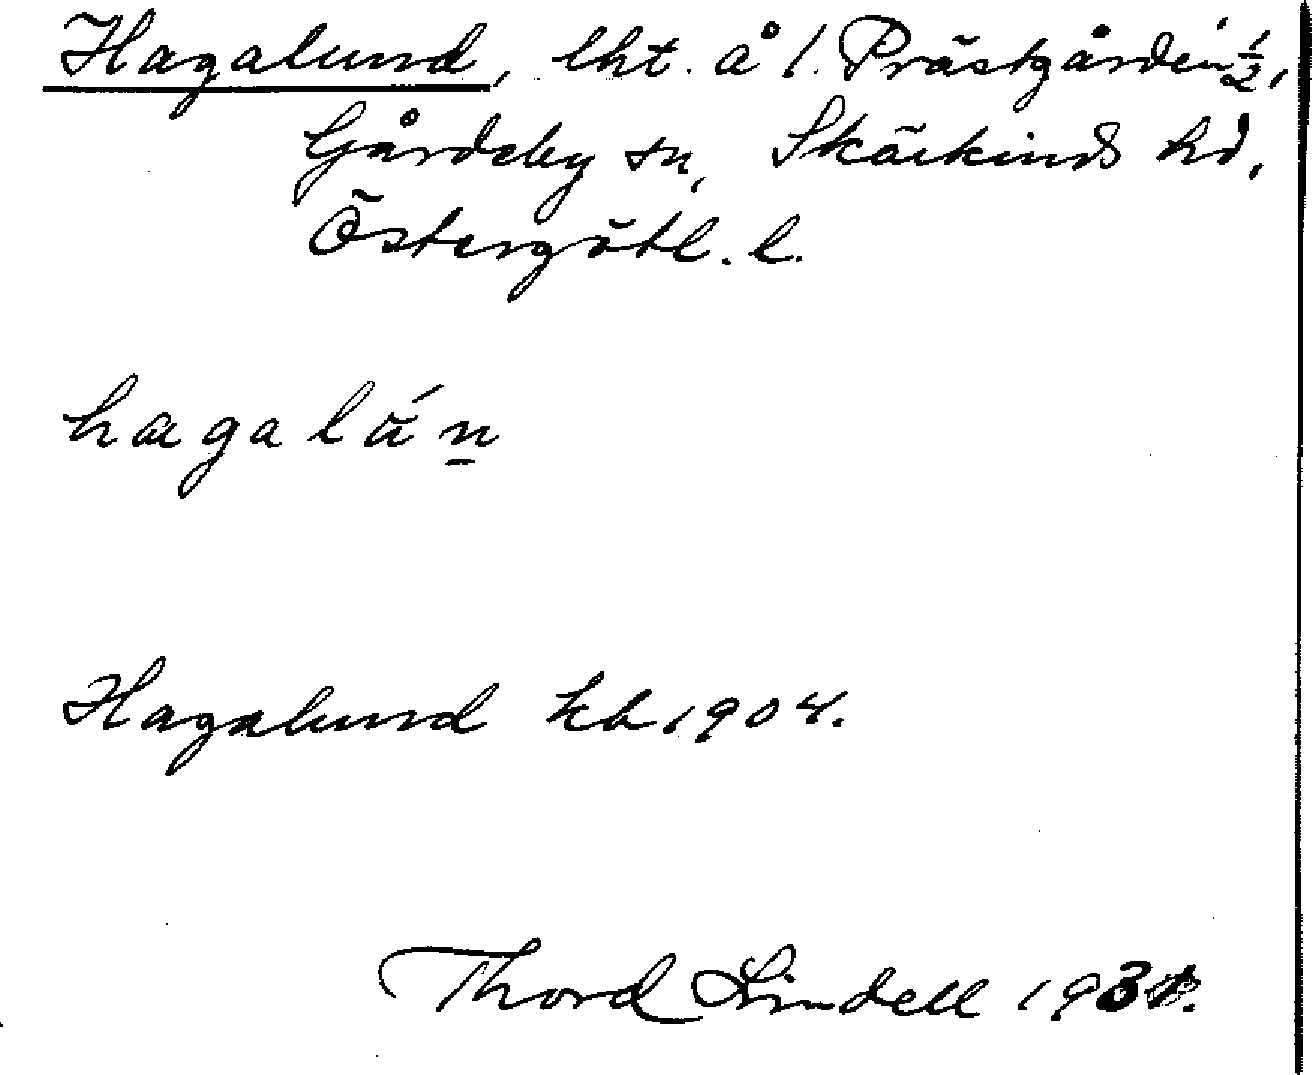 Hagalund, lht. å 1. Prästgården ½,
Gårdeby sn, Skärkinds hd,
Östergötl. l.
hagalún̲
Hagalund kb 1904.
Thord Lindell